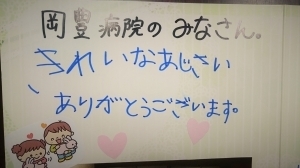 岡豊病院のみなさん。
きれいなあじさい
ありがとうございます。